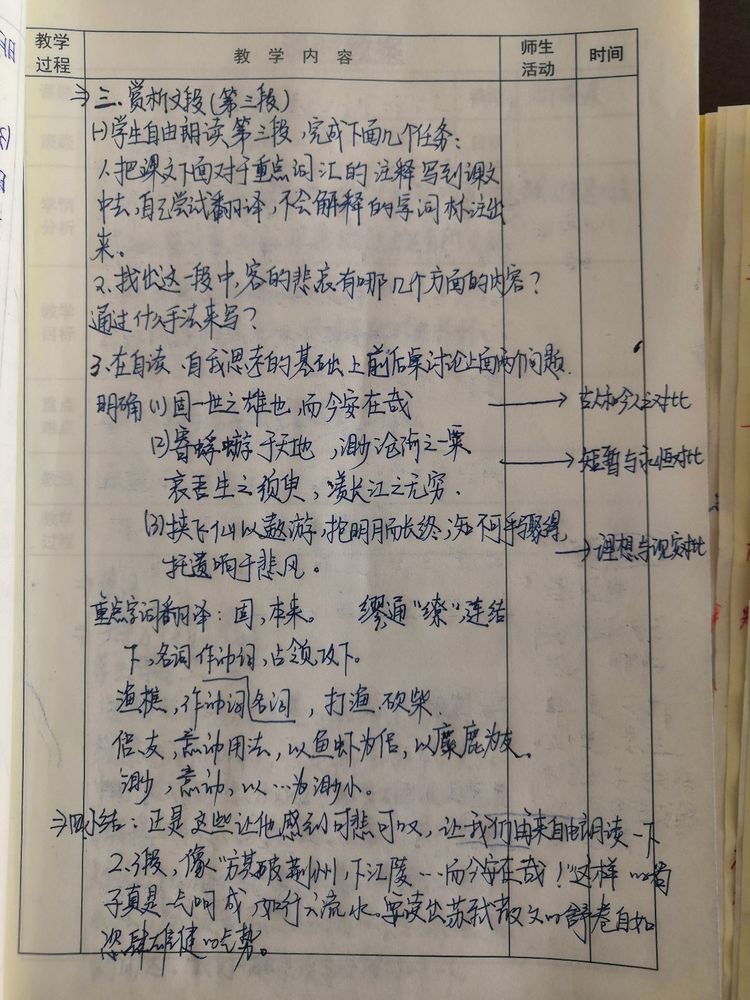 教学过程 教学内容 师生活动 时间
⇒三、赏析文段(第三段)
(-)学生自由朗读第三段,完成下面几个任务:
1、把课文下面对于重点词汇的注释写到课文
中去,自己尝试翻译,不会解释的字词标注出
来。
2、找出这一段中,客的悲哀有哪几个方面的内容?
通过什么手法来写?
3、在自读、自我思考的基础上前后桌讨论上面两个问题.
明确(1)固一世之雄也,而今安在哉 → 古人和今人对比
(2)寄蜉蝣于天地,渺沧海之一粟
→ 短暂与永恒对比
哀吾生之须臾,羡长江之无穷.
(3)挟飞仙以遨游,抱明月而长终,知不可乎骤得,
→ 理想与现实对比
托遗响于悲风。
重点字词翻译:固,本来。 缪通"缭",连结
下,名词作动词,占领,攻下。
渔樵,作动词名词,打渔.砍柴.
侣、友,意动用法,以鱼虾为侣,以麋鹿为友。
渺,意动,以…为渺小。
⇒四小结:正是这些让他感到可悲可叹,让我们再来自由朗读一下
2、3段,像"方其破荆州,下江陵…而今安在哉!"这样的句
子真是一气呵成,如行云流水。要读出苏轼散文的舒卷自如
恣肆雄健的气势。